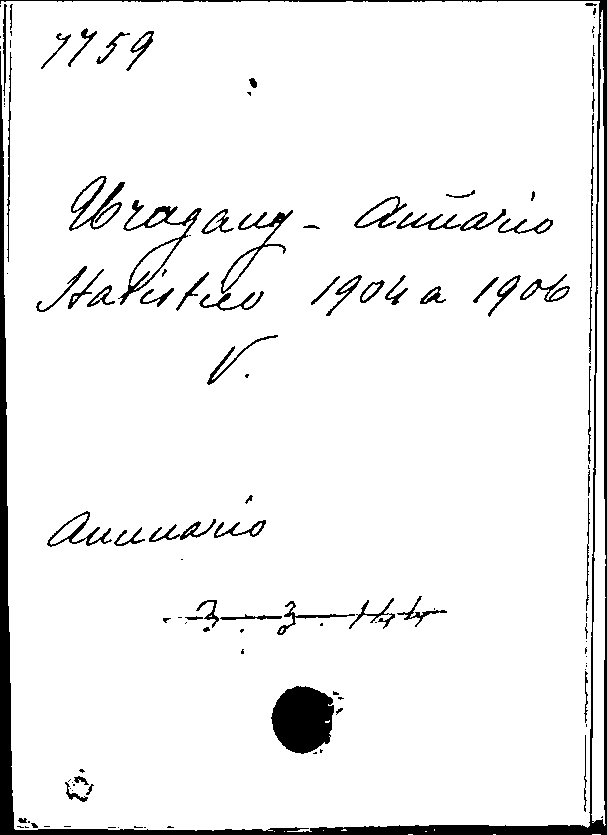 7759
Uruguay - Anuario
Statistico 1904 a 1906
V.
Annuario
3.3.144